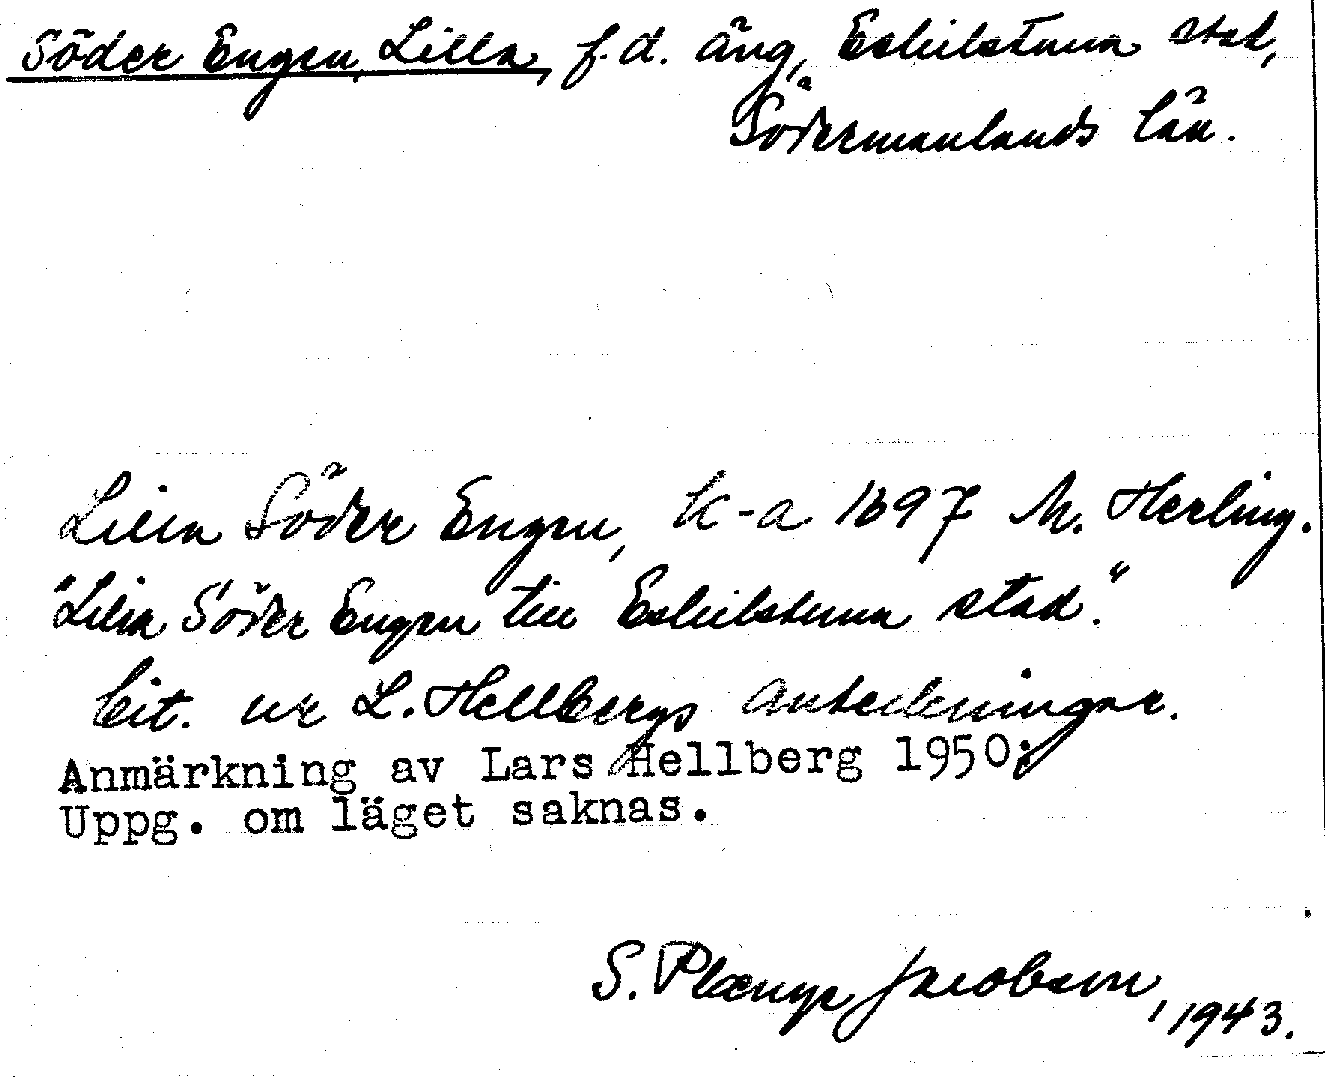 Söder Engen, Lilla, f.d. äng, Eskilstuna stad,
Södermanlands län.
Lilla Söder Engen, k-a 1697 M. Herling.
"Lilla Söder Engen till Eskilstuna stad."
Cit. ur L. Hellbergs anteckningar.
Anmärkning av Lars Hellberg 1950:
Uppg. om läget saknas.
S. Jacobsen, 1943.